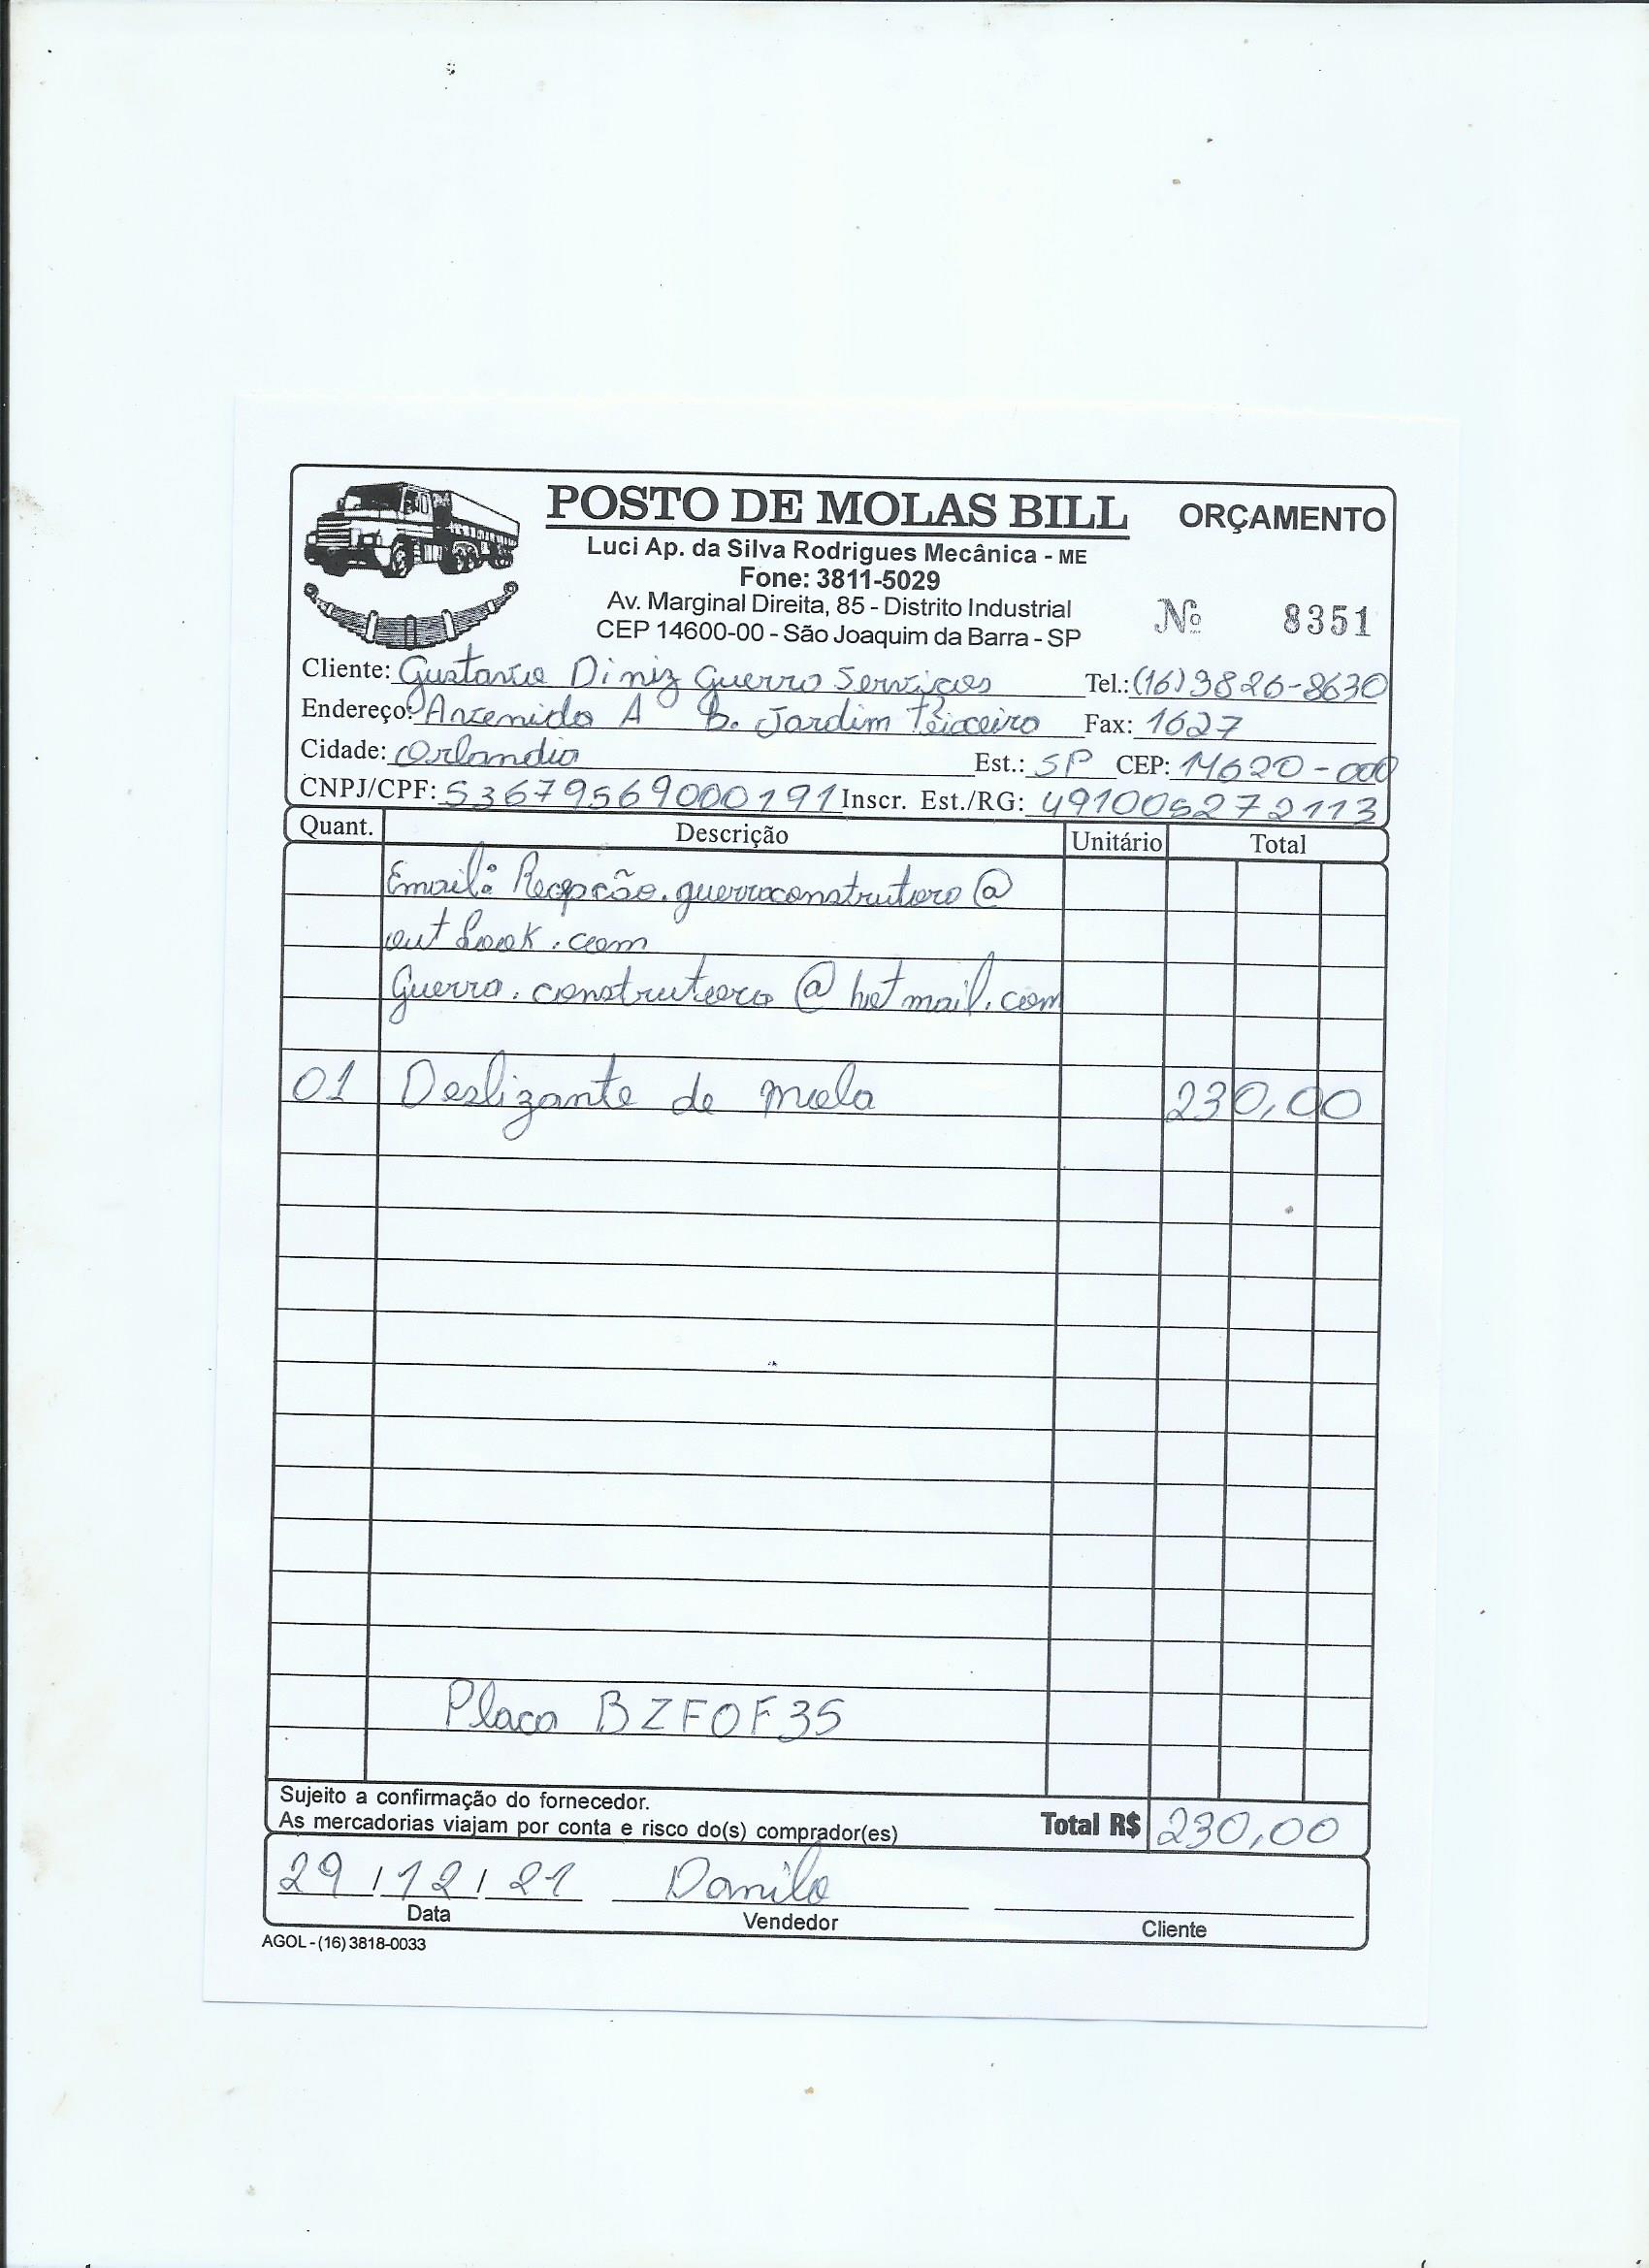 POSTO DE MOLAS BILL ORÇAMENTO
Luci Ap. da Silva Rodrigues Mecânica - ME
Fone: 3811-5029
Av. Marginal Direita, 85 - Distrito Industrial
CEP 14600-00 - São Joaquim da Barra - SP
Nº 8351
Cliente: Gustavo Diniz Guerra Serviços Tel.: (16) 3826-8630
Endereço: Avenida A B. Jardim Teixeira Fax: 1627
Cidade: Orlandia Est.: SP CEP: 14620-000
CNPJ/CPF: 53679569000191 Inscr. Est./RG: 491005272113
Quant. Descrição Unitário Total
Email: Recepcão.guerraconstrutora@
outlook.com
Guerra.construtora@hotmail.com
01 Deslizante de mola 230,00
Placa BZF0F35
Sujeito a confirmação do fornecedor.
As mercadorias viajam por conta e risco do(s) comprador(es) Total R$ 230,00
29/12/21 Danilo
Data Vendedor Cliente
AGOL - (16) 3818-0033